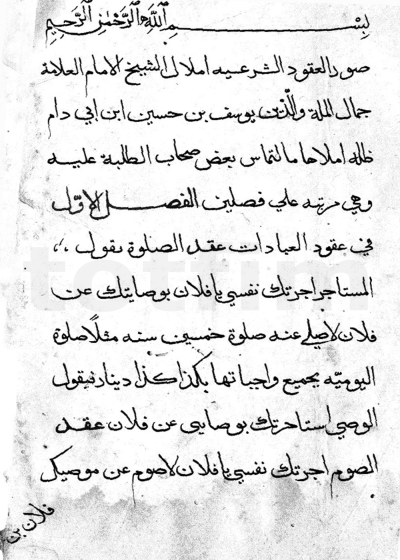 بسم الله الرحمن الرحيم
صور العقود الشرعيه املال الشيخ الامام العلامة
جمال الملة والدين يوسف بن حسين ابن ابي دام
ظله املاها مالتماس بعض صحاب الطلبة عليه
وهي مرتبه علي فصلين الفصل الاول
في عقود العبادات عقد الصلوة يقول
المستاجر اجرتك نفسي يا فلان بوصايتك عن
فلان لاصلي عنه صلوة خمسين سنه مثلا صلوة
اليوميه بجميع واجباتها بكذا كذا دينار فيقول
الوصي استاجرتك بوصايتي عن فلان عقد
الصوم اجرتك نفسي يا فلان لاصوم عن موصيك
فلان بن